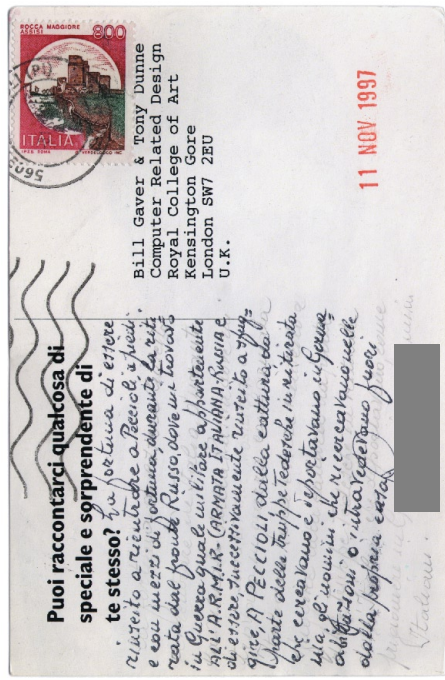 ROCCA MAGGIORE
ASSISI
800
ITALIA
I.P.Z.S. ROMA
Bill Gaver & Tony Dunne
Computer Related Design
Royal College of Art
Kensington Gore
London SW7 2EU
U.K.
11 NOV 1997
Puoi raccontarci qualcosa di
speciale e sorprendente di
te stesso? La fortuna di essere
riuscito a rientrare a Peccioli, a piedi
e con mezzi di fortuna, durante la riti
rata dal fronte Russo, dove mi trovavo
in Guerra quale militare appartenente
ALL'A.R.M.I.R. (ARMATA ITALIANA-RUSSIA e
di essere, successivamente riuscito a sfug=
gire A PECCIOLI dalla cattura da
parte delle Truppe Tedesche in ritirata
che cercavano e deportavano in Germa=
nia gli uomini che ricercavano nelle
abitazioni o intravedevano fuori
dalla propria casa